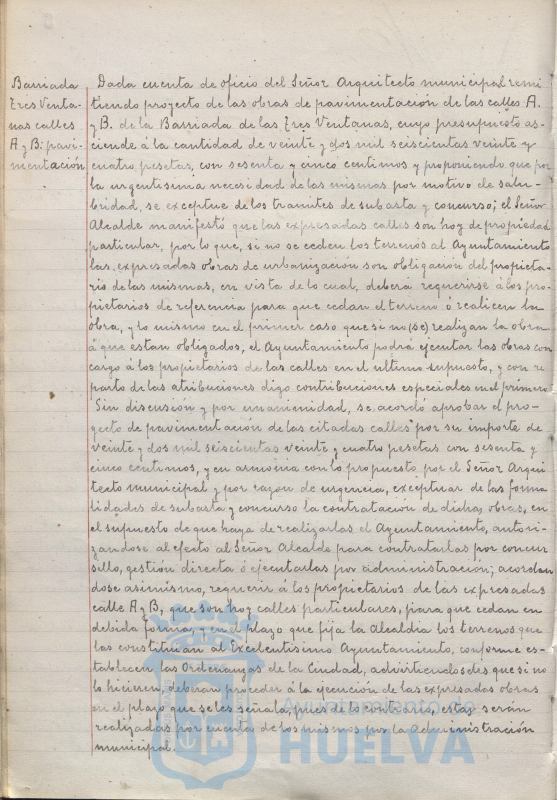 Barriada
Tres Venta-
nas calles
A y B: pavi-
mentación
Dada cuenta de oficio del Señor Arquitecto municipal remi
tiendo proyecto de las obras de pavimentación de las calles A.
y B. de la Barriada de las Tres Ventanas, cuyo presupuesto as-
ciende á la cantidad de veinte y dos mil seiscientas veinte y
cuatro pesetas, con sesenta y cinco centimos y proponiendo que por
la urgentisima necesidad de las mismas por motivo de salu-
bridad, se exceptue de los tramites de subasta y concurso; el Señor
Alcalde manifestó que las expresadas calles son hoy de propiedad
particular, por lo que, si no se ceden los terrenos al Ayuntamiento
las expresadas obras de urbanización son obligación del propieta-
rio de las mismas, en vista de lo cual, deberá requerirse á los pro-
pietarios de referencia para que cedan el terreno ó realicen la
obra, y lo mismo en el primer caso que si no (se) realizan la obra
á que estan obligados, el Ayuntamiento podrá ejecutar las obras con
cargo á los propietarios de las calles en el ultimo supuesto, y con re
parto de las atribuciones digo contribuciones especiales en el primero
Sin discusión y por unanimidad, se acordó aprobar el pro-
yecto de pavimentación de las citadas calles por su importe de
veinte y dos mil seiscientas veinte y cuatro pesetas con sesenta y
cinco centimos, y en armonia con lo propuesto por el Señor Arqui
tecto municipal y por razon de urgencia, exceptuar de las forma
lidades de subasta y concurso la contratación de dichas obras, en
el supuesto de que haya de realizarlas el Ayuntamiento, autori-
zandose al efecto al Señor Alcalde para contratarlas por concur
sillo, gestión directa ó ejecutarlas por administración; acordan
dose asimismo, requerir á los propietarios de las expresadas
calle A y B, que son hoy calles particulares, para que cedan en
debida forma, y en el plazo que fija la Alcaldia los terrenos que
las constituian al Excelentisimo Ayuntamiento, conforme es-
tablecen las Ordenanzas de la Ciudad, advirtiendoseles que si no
lo hicieren, deberan proceder á la ejecución de las expresadas obras
en el plazo que se les señala, pues de lo contrario, estas serán
realizadas por cuenta de los mismos por la administración
municipal.
Ayuntamiento de
HUELVA